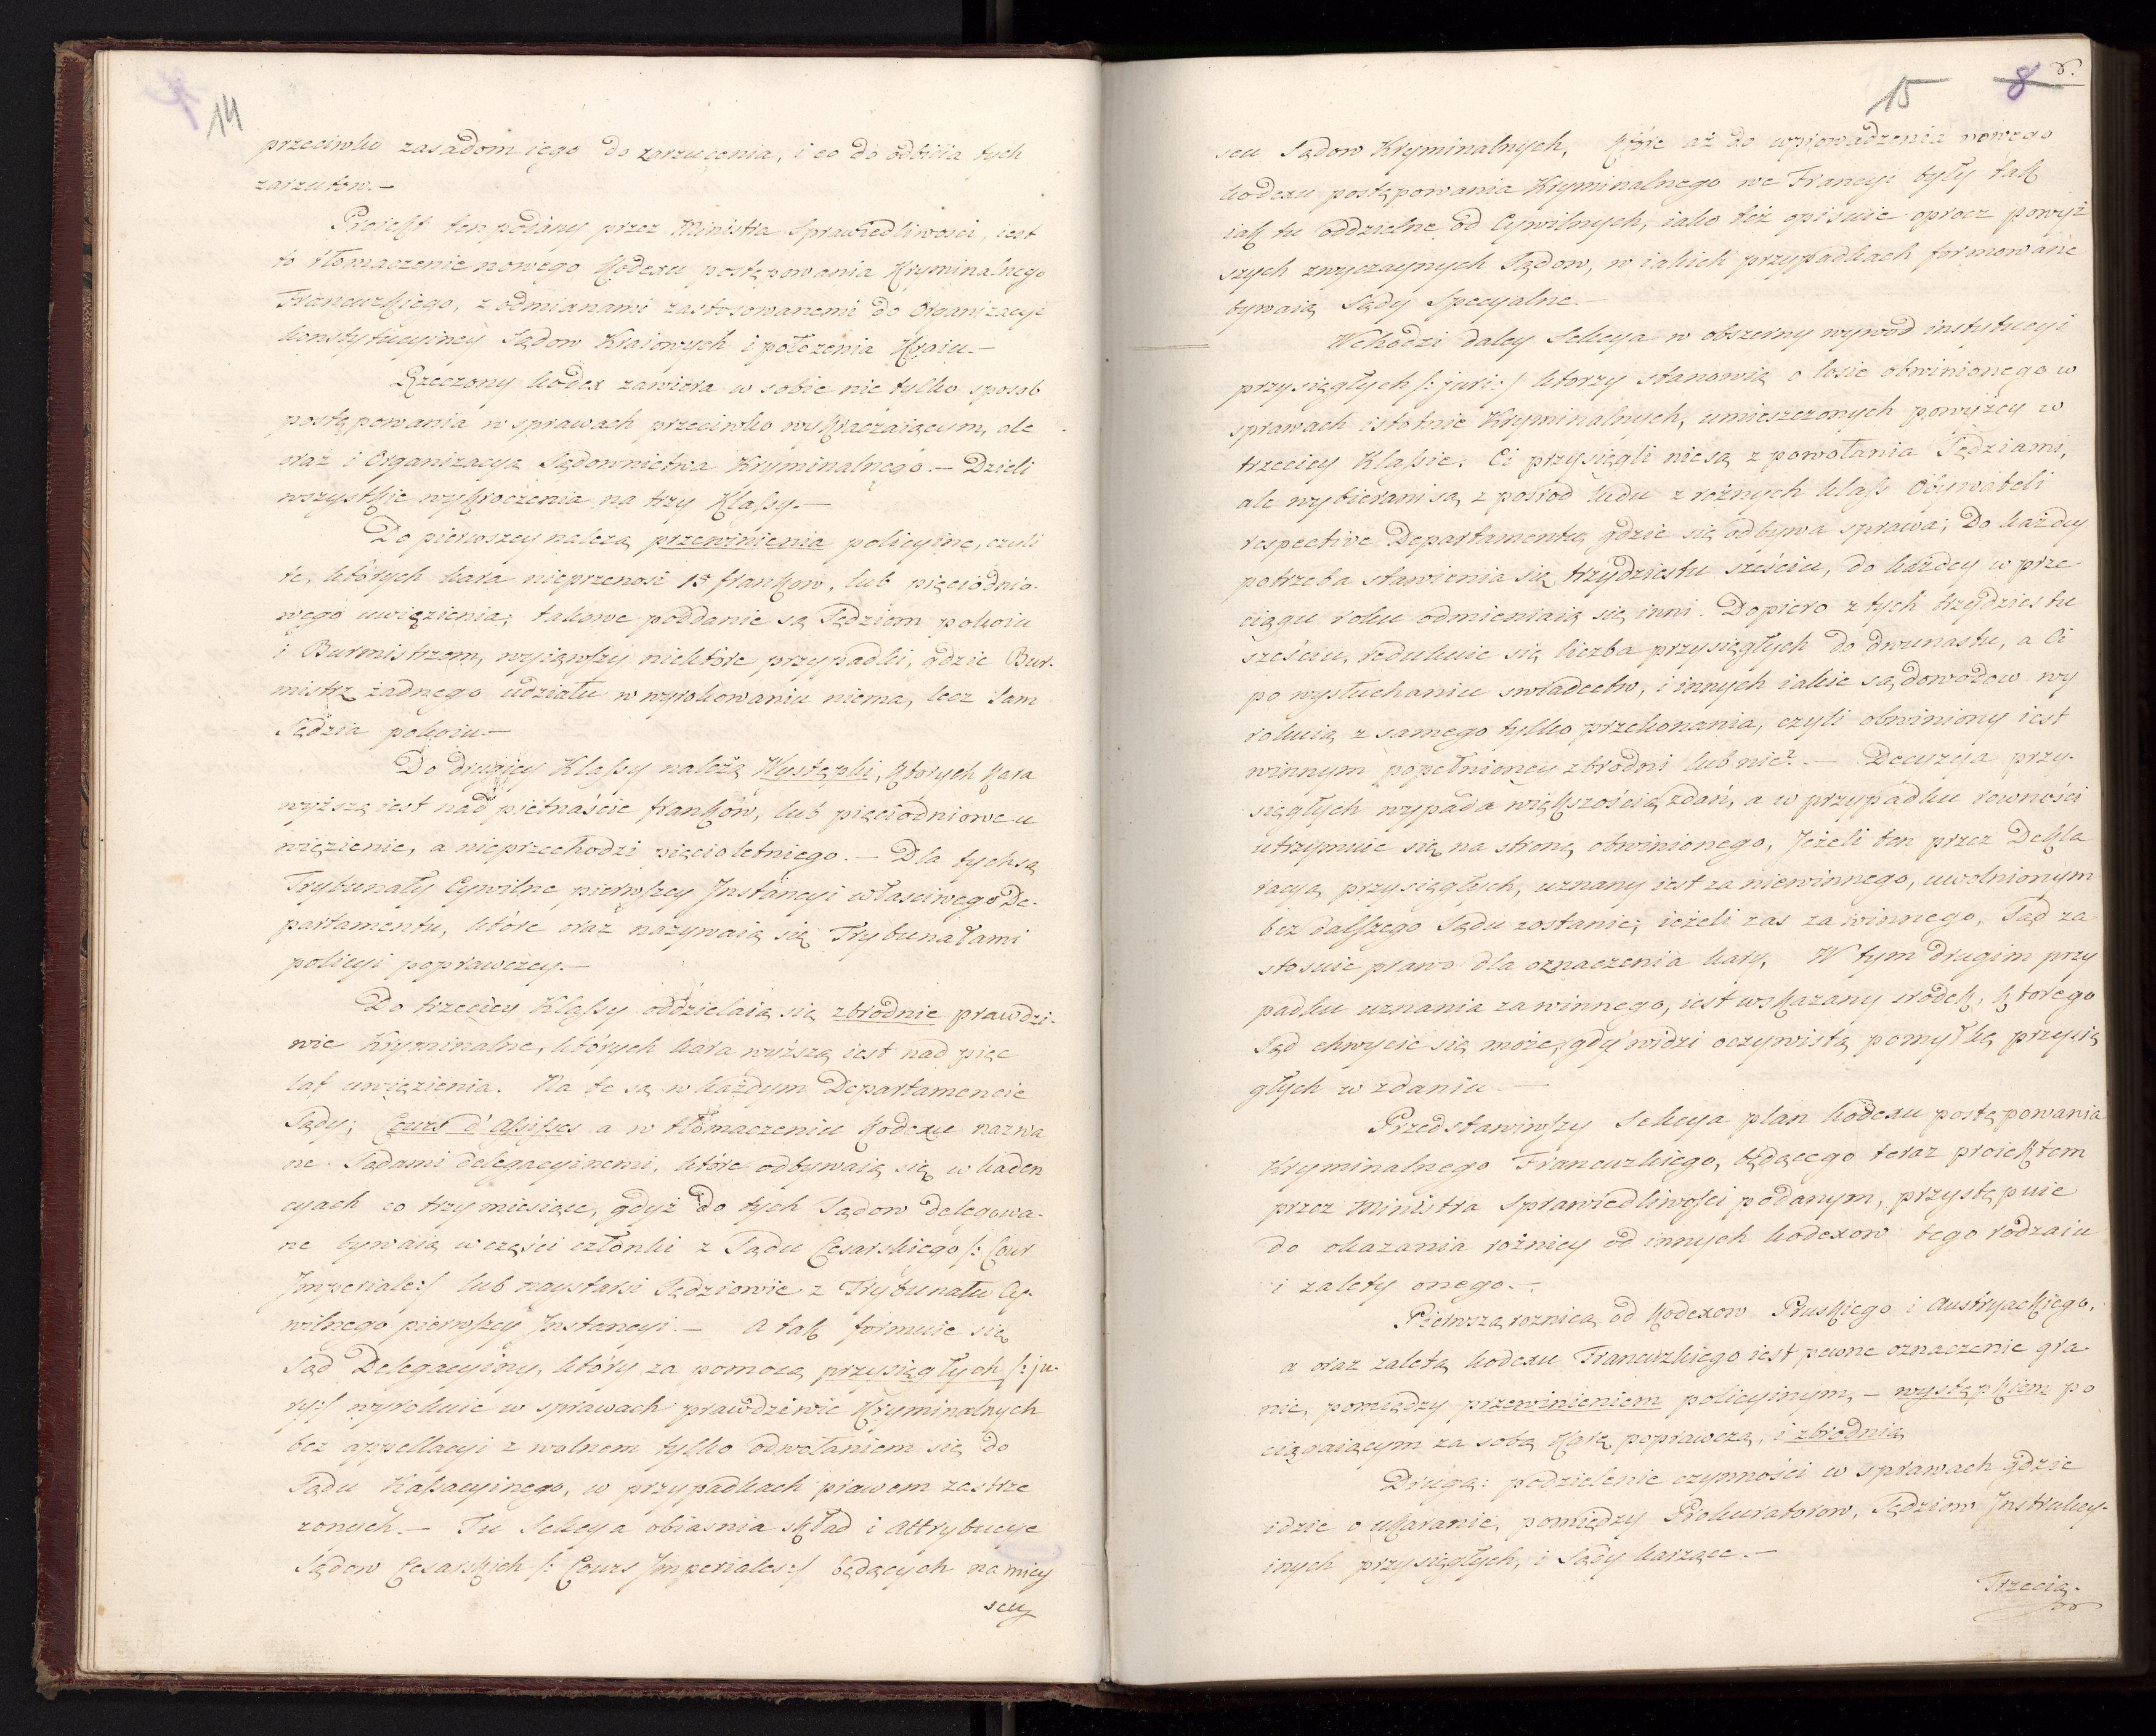 14
przeciwko zasadom iego do zarzucenia, i co do odbicia tych
zarzutow.—
Proiekt ten podany przez Ministra Sprawiedliwosci, iest
to tłomaczenie nowego Kodexu postępowania Kryminalnego
Francuzkiego, z odmianami zastosowanemi do Organizacyi
konstytucyiney Sądow Kraiowych i położenia Kraiu.—
Rzeczony kodex zawiera w sobie nie tylko sposob
postępowania w sprawach przeciwko wykraczaiącym, ale
oraz i Organizacyą Sądownictwa Kryminalnego.— Dzieli
wszystkie wykroczenia na trzy Klassy.—
Do pierwszey należą przewinienia policyine, czyli
te, których kara nieprzenosi 15 frankow, lub pięciodnio-
wego uwięzienia; takowe poddanie są Sędziom pokoiu
i Burmistrzom, wyiąwszy niektóre przypadki, gdzie Bur-
mistrz żadnego udziału w wyrokowaniu niema, lecz Sam
Sędzia pokoiu.—
Do drugiey Klassy należą Występki, ktorych kara
wyższą iest nad piętnaście franków, lub pięciodniowe u
więzienie, a nieprzechodzi pięcioletniego.— Dla tych są
Trybunały Cywilne pierwszey Instancyi właściwego De-
partamentu, które oraz nazywaią się Trybunałami
policyi poprawczey.—
Do trzeciey Klassy oddzielaią się zbrodnie prawdzi-
wie Kryminalne, których kara wyższą iest nad pięc
lat uwięzienia. Na te są w każdym Departamencie
Sądy; Cours d'Assises a w tłomaczeniu Kodexu nazwa
ne Sądami delegacyinemi, które odbywaią się w kaden
cyach co trzy miesiące, gdyż do tych Sądow delegowa-
ne bywaią w części członki z Sądu Cesarskiego /: Cour
Imperiale:/ lub naystarsi Sędziowie z Trybunału Cy-
wilnego pierwszey Instancyi.— A tak formuie się
Sąd Delegacyiny, który za pomocą przysięgłych /: ju-
ry:/ wyrokuie w sprawach prawdziwie Kryminalnych
bez appellacyi z wolnem tylko odwołaniem się do
Sądu Kassacyinego, w przypadkach prawem zestrze
zonych.— Tu Sekcya obiasnia skład i attrybucye
Sądow Cesarskich /: Cours Imperiales:/ będących na miey
scu
15 8
scu Sądow Kryminalnych, które aż do wprowadzenia nowego
kodexu postępowania Kryminalnego we Francyi były tak
iak tu oddzielne od Cywilnych, iako też opisuie oprocz powyż
szych zwyczaynych Sądow, w iakich przypadkach formowane
bywaią Sądy Specyalne.—
Wchodzi daley Sekcya w obszerny wywod instytucyi
przysięgłych /: juri:/ ktorzy stanowią o losie obwinionego w
sprawach istotnie Kryminalnych, umieszczonych powyżey w
trzeciey Klassie. Ci przysięgli nie są z powołania Sędziami,
ale wybierani są z posrod ludu z rożnych klass Obywateli
respective Departamentu, gdzie się odbywa sprawa; Do każdey
potrzeba stawienia się trzydziestu sześciu, do każdey w prze
ciągu roku odmieniaią się inni. Dopiero z tych trzydziestu
sześciu, redukuie się liczba przysięgłych do dwunastu, a Ci
po wysłuchaniu swiadectw, i innych iakie są dowodow wy
rokuią z samego tylko przekonania, czyli obwiniony iest
winnym popełnioney zbrodni lub nie?— Decyzya przy-
sięgłych wypada większością zdań, a w przypadku rowności
utrzymuie się na stronę obwinionego, Jeżeli ten przez Dekla
racyą przysięgłych, uznany iest za niewinnego, uwolnionym
bez dalszego Sądu zostanie; ieżeli zas za winnego, Sąd za
stosuie prawo dla oznaczenia kary. W tym drugim przy
padku uznania za winnego, iest wskazany srodek, ktorego
Sąd chwycic się może, gdy widzi oczywistą pomyłkę przysię
głych w zdaniu.—
Przedstawiwszy Sekcya plan kodexu postępowania
Kryminalnego Francuzkiego, będącego teraz proiektem
przez Ministra Sprawiedliwości podanym, przystępuie
do okazania rożnicy od innych kodexow tego rodzaiu
i zalety onego.—
Pierwszą roznicą od Kodexow Pruskiego i Austryackiego,
a oraz zaletą kodexu Francuzkiego iest pewne oznaczenie gra
nic, pomiędzy przewinieniem policyinym,— występkiem po
ciągaiącym za sobą Karę poprawczą, i zbrodnią
Drugą: podzielenie czynności w sprawach gdzie
idzie o ukaranie, pomiędzy Prokuratorow, Sędziow Instrukcy-
inych przysięgłych, i Sądy karzące.—
Trzecią.